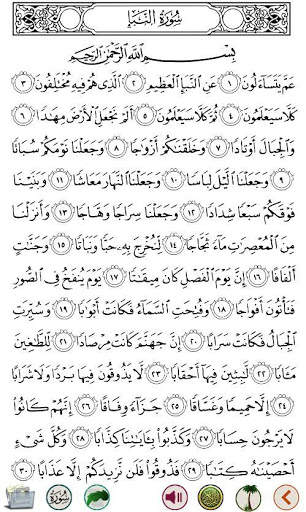 سُورَةُ النَّبَإِ
بِسْمِ اللَّهِ الرَّحْمَٰنِ الرَّحِيمِ
عَمَّ يَتَسَاءَلُونَ ١ عَنِ النَّبَإِ الْعَظِيمِ ٢ الَّذِي هُمْ فِيهِ مُخْتَلِفُونَ ٣
كَلَّا سَيَعْلَمُونَ ٤ ثُمَّ كَلَّا سَيَعْلَمُونَ ٥ أَلَمْ نَجْعَلِ الْأَرْضَ مِهَٰدًا ٦
وَالْجِبَالَ أَوْتَادًا ٧ وَخَلَقْنَٰكُمْ أَزْوَٰجًا ٨ وَجَعَلْنَا نَوْمَكُمْ سُبَاتًا
٩ وَجَعَلْنَا الَّيْلَ لِبَاسًا ١٠ وَجَعَلْنَا النَّهَارَ مَعَاشًا ١١ وَبَنَيْنَا
فَوْقَكُمْ سَبْعًا شِدَادًا ١٢ وَجَعَلْنَا سِرَاجًا وَهَّاجًا ١٣ وَأَنزَلْنَا
مِنَ الْمُعْصِرَٰتِ مَاءً ثَجَّاجًا ١٤ لِّنُخْرِجَ بِهِ حَبًّا وَنَبَاتًا ١٥ وَجَنَّٰتٍ
أَلْفَافًا ١٦ إِنَّ يَوْمَ الْفَصْلِ كَانَ مِيقَٰتًا ١٧ يَوْمَ يُنفَخُ فِي الصُّورِ
فَتَأْتُونَ أَفْوَاجًا ١٨ وَفُتِحَتِ السَّمَاءُ فَكَانَتْ أَبْوَٰبًا ١٩ وَسُيِّرَتِ
الْجِبَالُ فَكَانَتْ سَرَابًا ٢٠ إِنَّ جَهَنَّمَ كَانَتْ مِرْصَادًا ٢١ لِّلطَّٰغِينَ
مَـَٔابًا ٢٢ لَّٰبِثِينَ فِيهَا أَحْقَابًا ٢٣ لَّا يَذُوقُونَ فِيهَا بَرْدًا وَلَا شَرَابًا
٢٤ إِلَّا حَمِيمًا وَغَسَّاقًا ٢٥ جَزَاءً وِفَاقًا ٢٦ إِنَّهُمْ كَانُوا
لَا يَرْجُونَ حِسَابًا ٢٧ وَكَذَّبُوا بِـَٔايَٰتِنَا كِذَّابًا ٢٨ وَكُلَّ شَيْءٍ
أَحْصَيْنَٰهُ كِتَٰبًا ٢٩ فَذُوقُوا فَلَن نَّزِيدَكُمْ إِلَّا عَذَابًا ٣٠
سورة